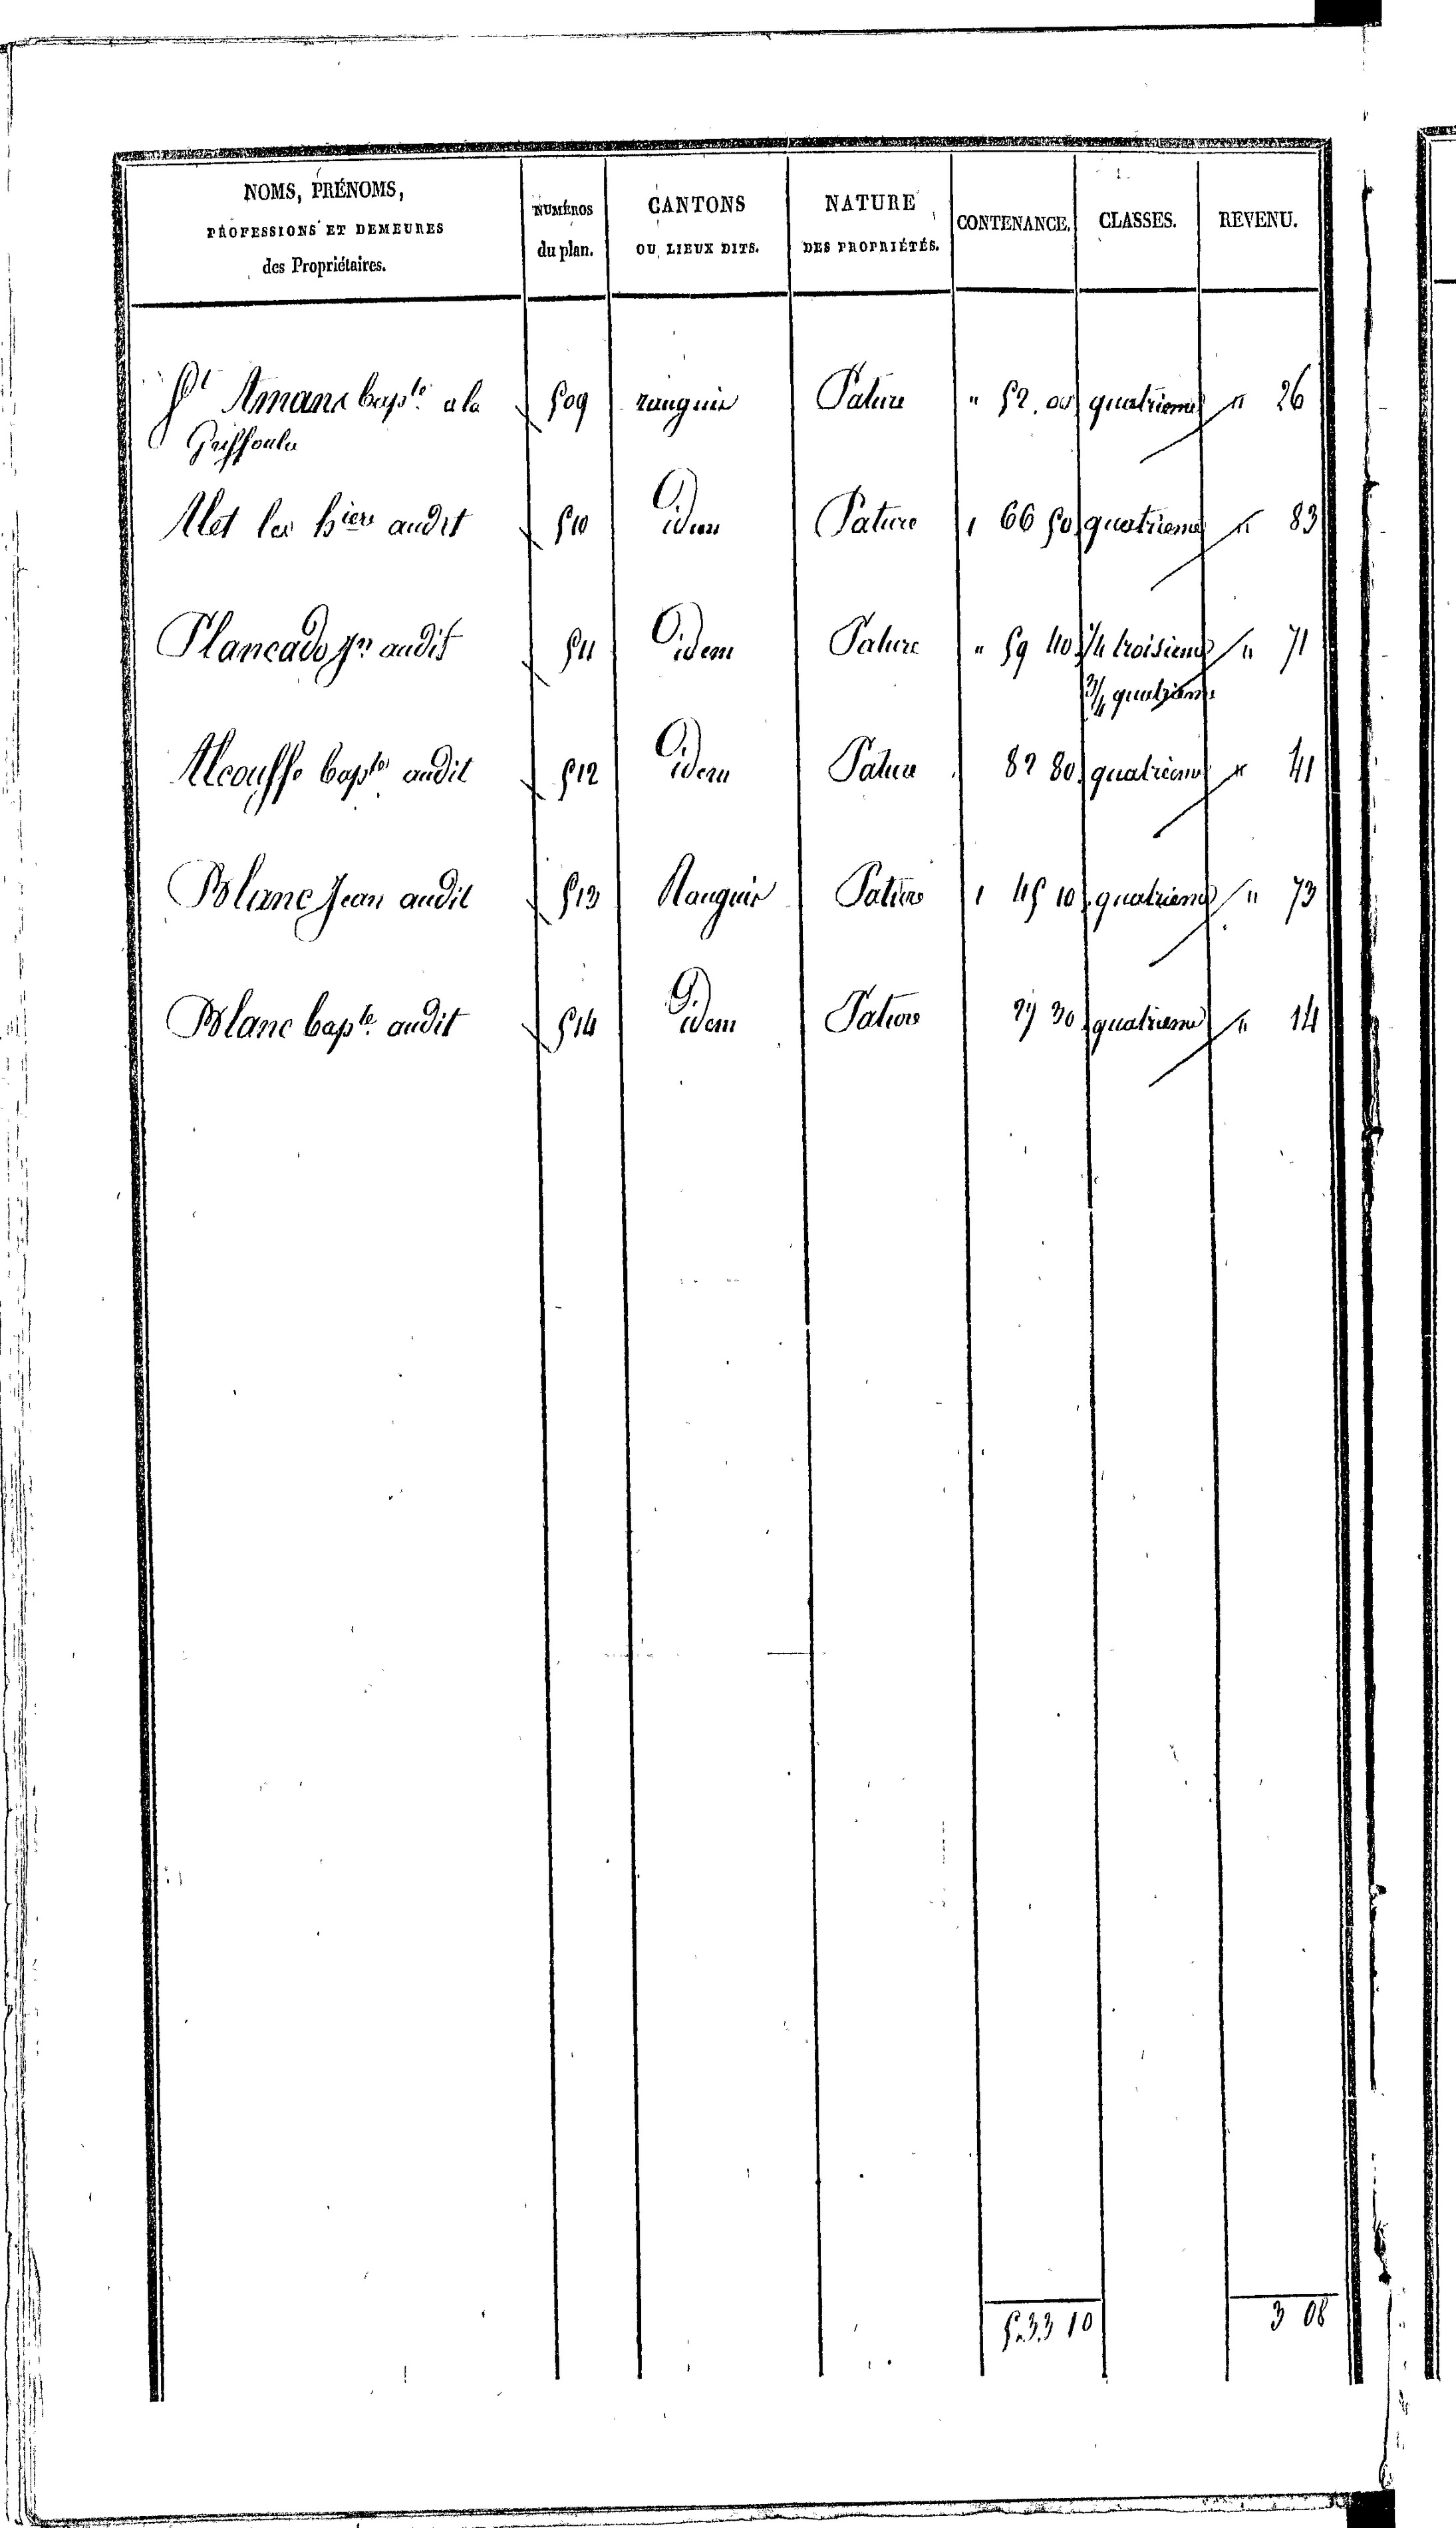 NOMS, PRÉNOMS,
PROFESSIONS ET DEMEURES
des Propriétaires.
NUMÉROS
du plan.
CANTONS
OU LIEUX DITS.
NATURE
DES PROPRIÉTÉS.
CONTENANCE.
CLASSES.
REVENU.
St Amans bapte a la 509 ranguis Pature " 52. 00 quatrieme " 26
Griffoule
Alet les hiers audit 510 idem Pature 1 66 50 quatrieme " 83
Plancade audit 511 idem Pature " 59 40 1/4 troisieme " 71
3/4 quatrieme
Alcouffe bapte audit 512 idem Pature 82 80 quatrieme " 41
Blanc Jean audit 513 Ranguis Pature 1 45 10 quatrieme " 73
Blanc bapte audit 514 idem Pature 27 30 quatrieme " 14
5.33 10 3 08